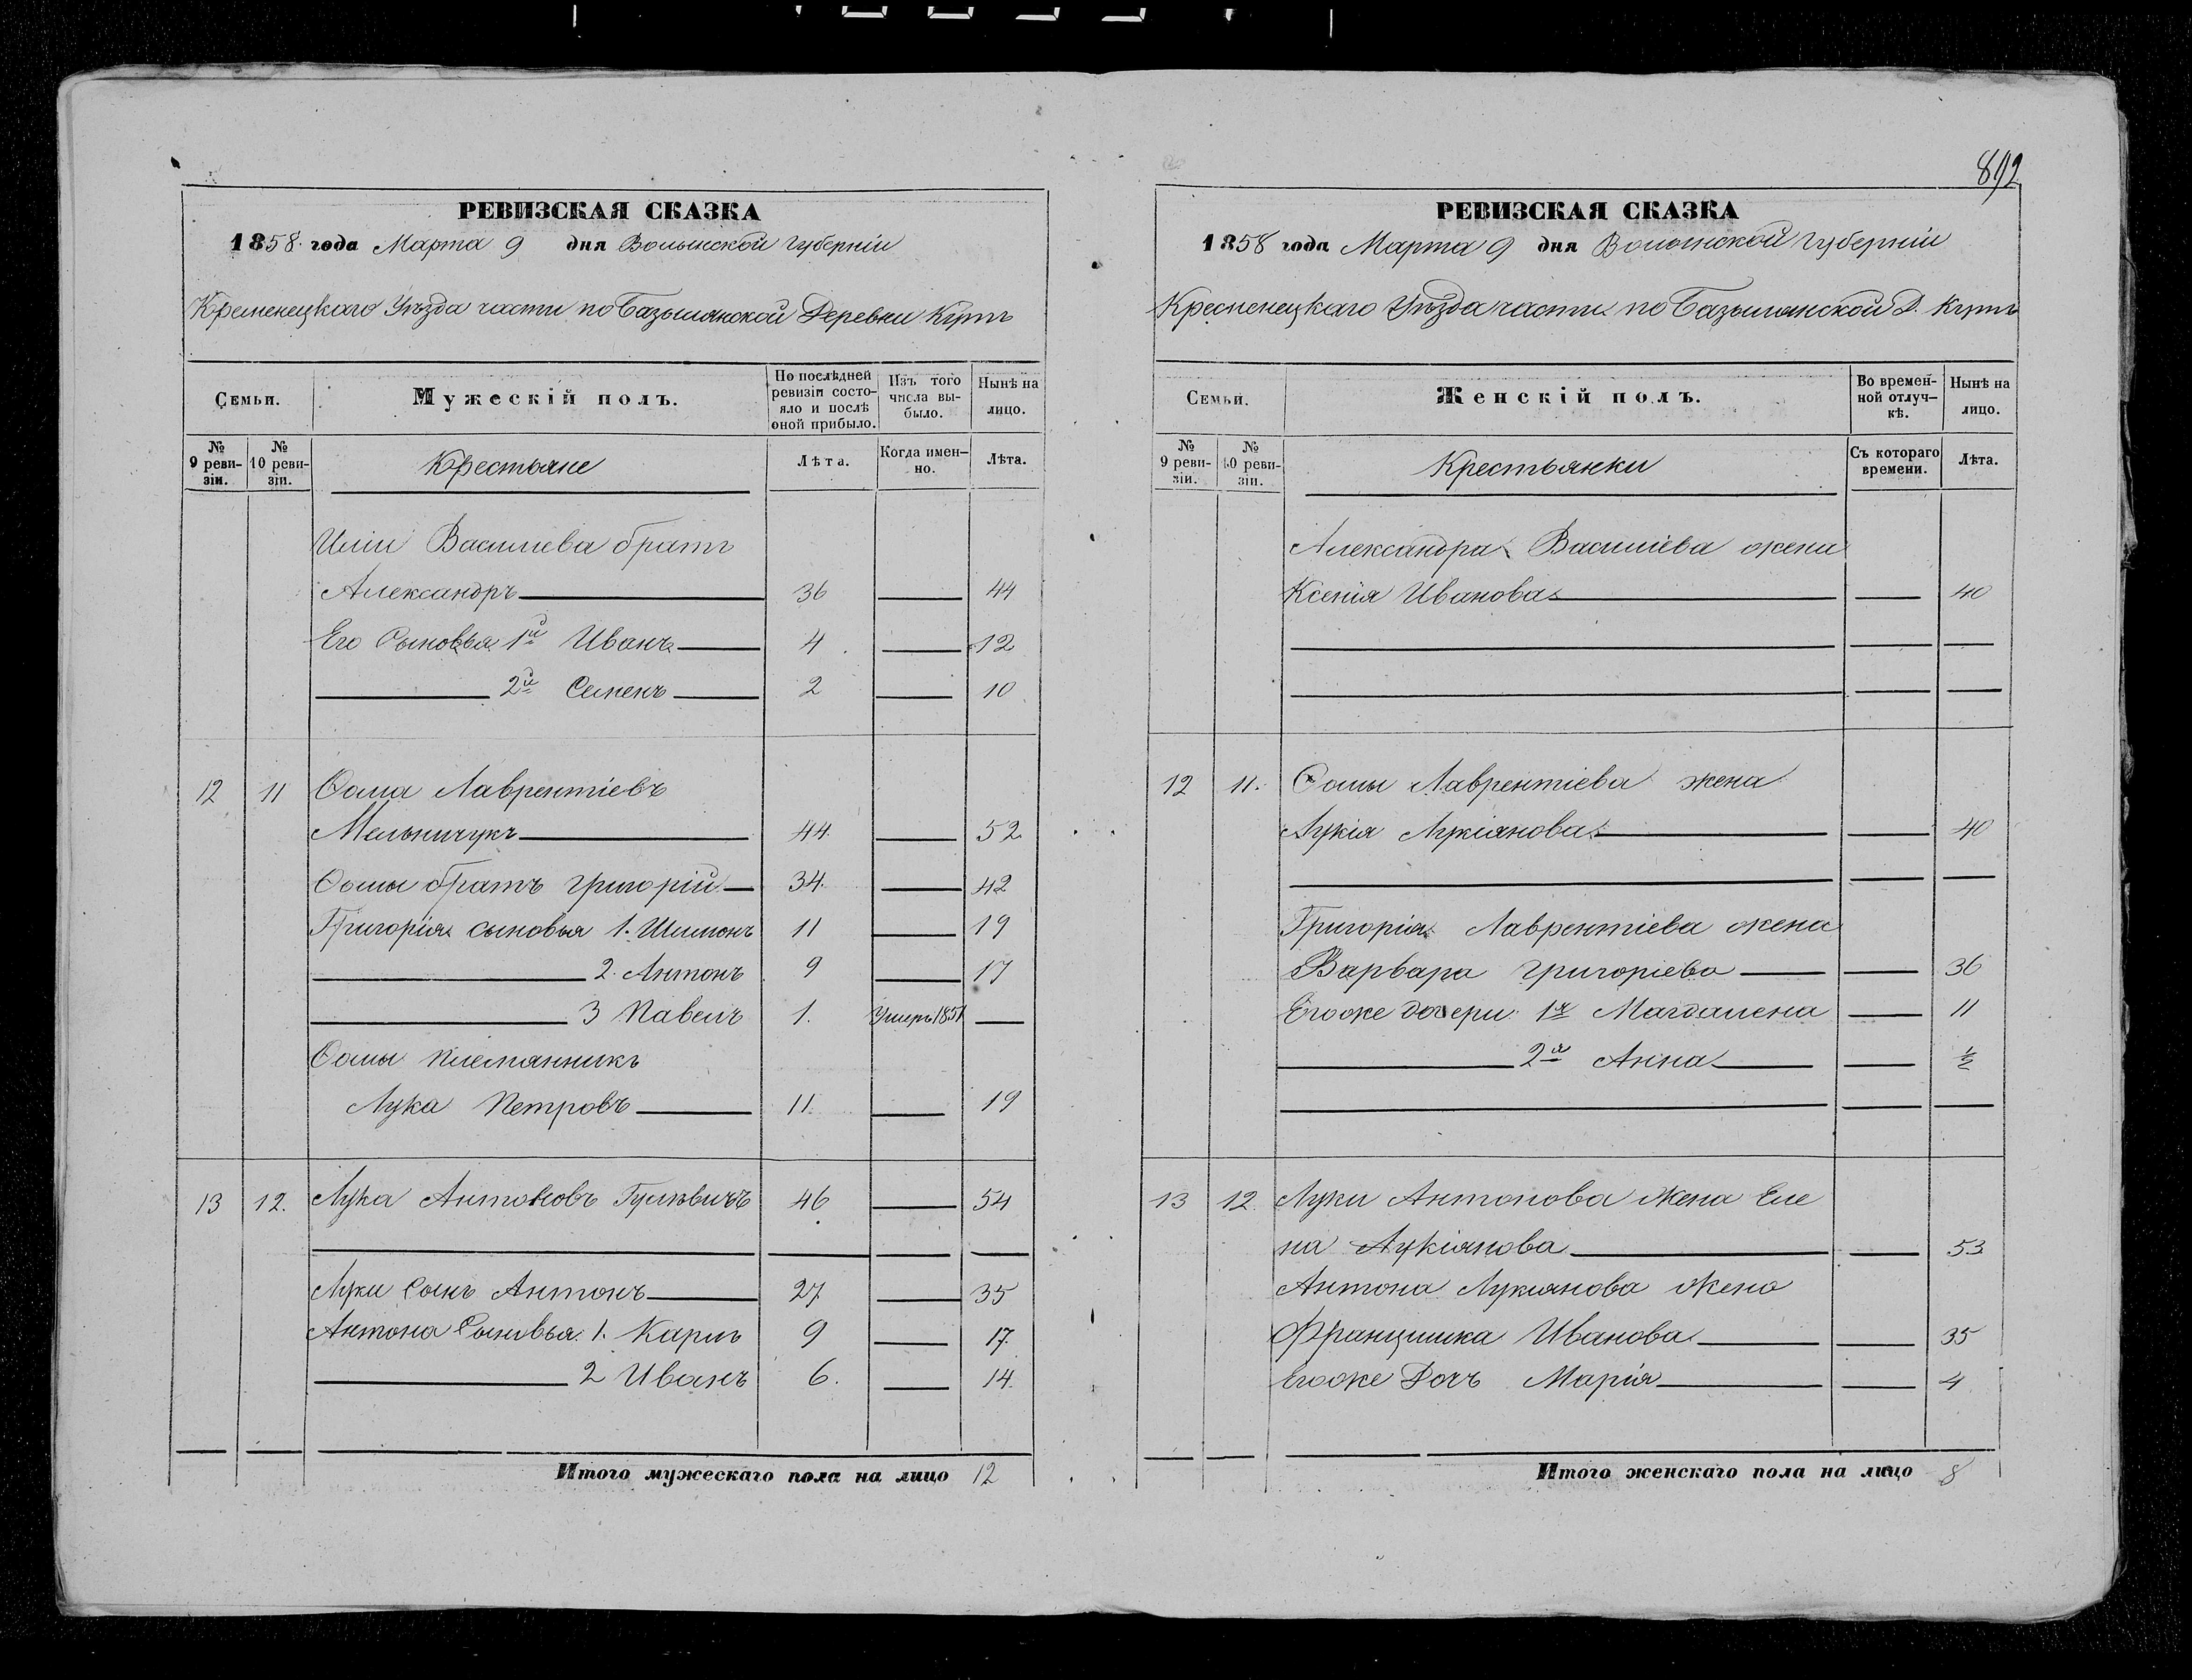 892
РЕВИЗСКАЯ СКАЗКА
1858 года Марта 9 дня Волынской Губерніи
Кременецкаго Уѣзда части по Базылянской Деревни Куты
Семьи.
Мужескій полъ.
По послѣдней ревизіи состояло и послѣ оной прибыло.
Изъ того числа выбыло.
Нынѣ на лицо.
№ 9 ревизіи.
№ 10 ревизіи.
Крестьяне
Лѣта.
Когда именно.
Лѣта.
Иліи Василіева братъ
Александръ 36 — 44
Его Сыновья 1й Иванъ 4 — 12
2й Семенъ 2 — 10
12 11 Ѳома Лаврентіевъ
Мельничукъ 44 — 52
Ѳомы братъ Григорій 34 — 42
Григорія сыновья 1. Шимонъ 11 — 19
2. Антонъ 9 — 17
3 Павелъ 1. Умеръ 1851 —
Ѳомы племянникъ
Лука Петровъ 11 — 19
13 12. Лука Антоновъ 46 — 54
Луки Сынъ Антонъ 27 — 35
Антона Сыновья 1. Карлъ 9 — 17
2 Иванъ 6. — 14
Итого мужескаго пола на лицо 12
РЕВИЗСКАЯ СКАЗКА
1858 года Марта 9 дня Волынской Губерніи
Кременецкаго Уѣзда части по Базылянской Д. Куты
Семьи.
Женскій полъ.
Во временной отлучкѣ.
Нынѣ на лицо.
№ 9 ревизіи.
№ 10 ревизіи.
Крестьянки
Съ котораго времени.
Лѣта.
Александра Василіева жена
Ксенія Иванова — 40
12 11. Ѳомы Лаврентіева жена
Лукія Лукіянова — 40
Григорія Лаврентіева жена
Варвара Григоріева — 36
Егоже дочери 1я Магдалена — 11
2я Анна — ½
13 12. Луки Антонова Жена Еле
на Лукіянова — 53
Антона Лукіянова Жена
Францишка Иванова — 35
Егоже Дочь Марія — 4
Итого женскаго пола на лицо 8